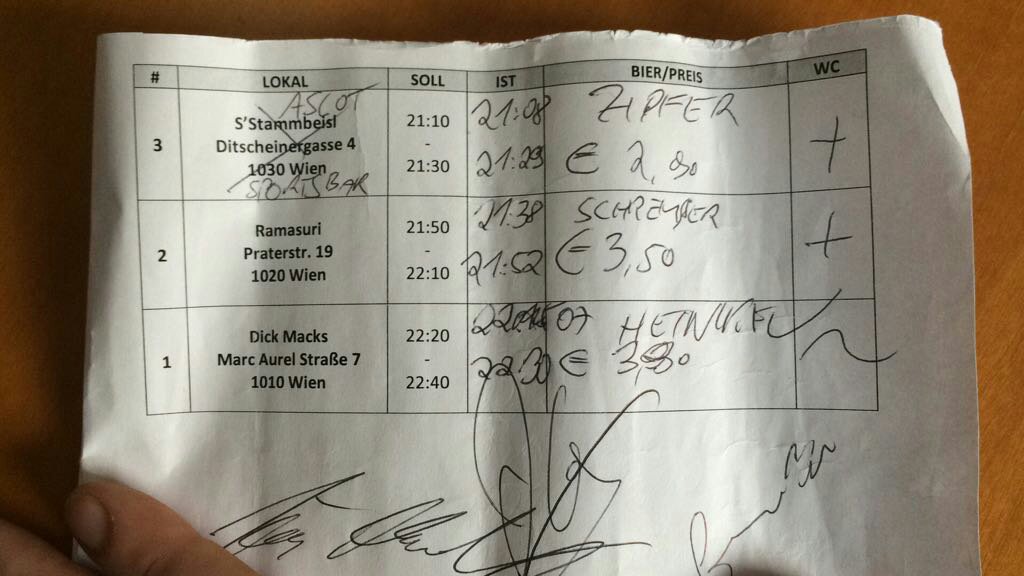 # LOKAL SOLL IST BIER/PREIS WC
ASCOT
S'Stammbeisl 21:10 21:08 ZIPFER
3 Ditscheinergasse 4 - +
1030 Wien 21:30 21:29 € 2,90
SPORTSBAR
Ramasuri 21:50 21:38 SCHREMSER
2 Praterstr. 19 - +
1020 Wien 22:10 21:52 € 3,50
Dick Macks 22:20 07
1 Marc Aurel Straße 7 -
1010 Wien 22:40 22:30 €